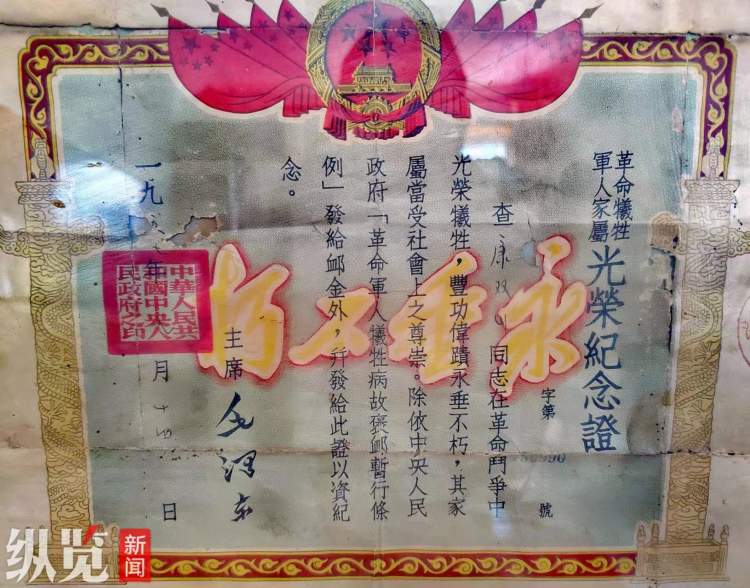 革命犧牲
軍人家屬
光榮紀念證
字第 號
查康 同志在革命鬥爭中
光榮犧牲，豐功偉蹟永垂不朽，其家
屬當受社會上之尊崇。除依中央人民
政府「革命軍人犧牲病故褒卹暫行條
例」發給卹金外，并發給此證以資紀
念。
主席 毛澤东
一九 年 月十四日
永垂不朽
中華人民共
和國中央人
民政府之印
纵览新闻